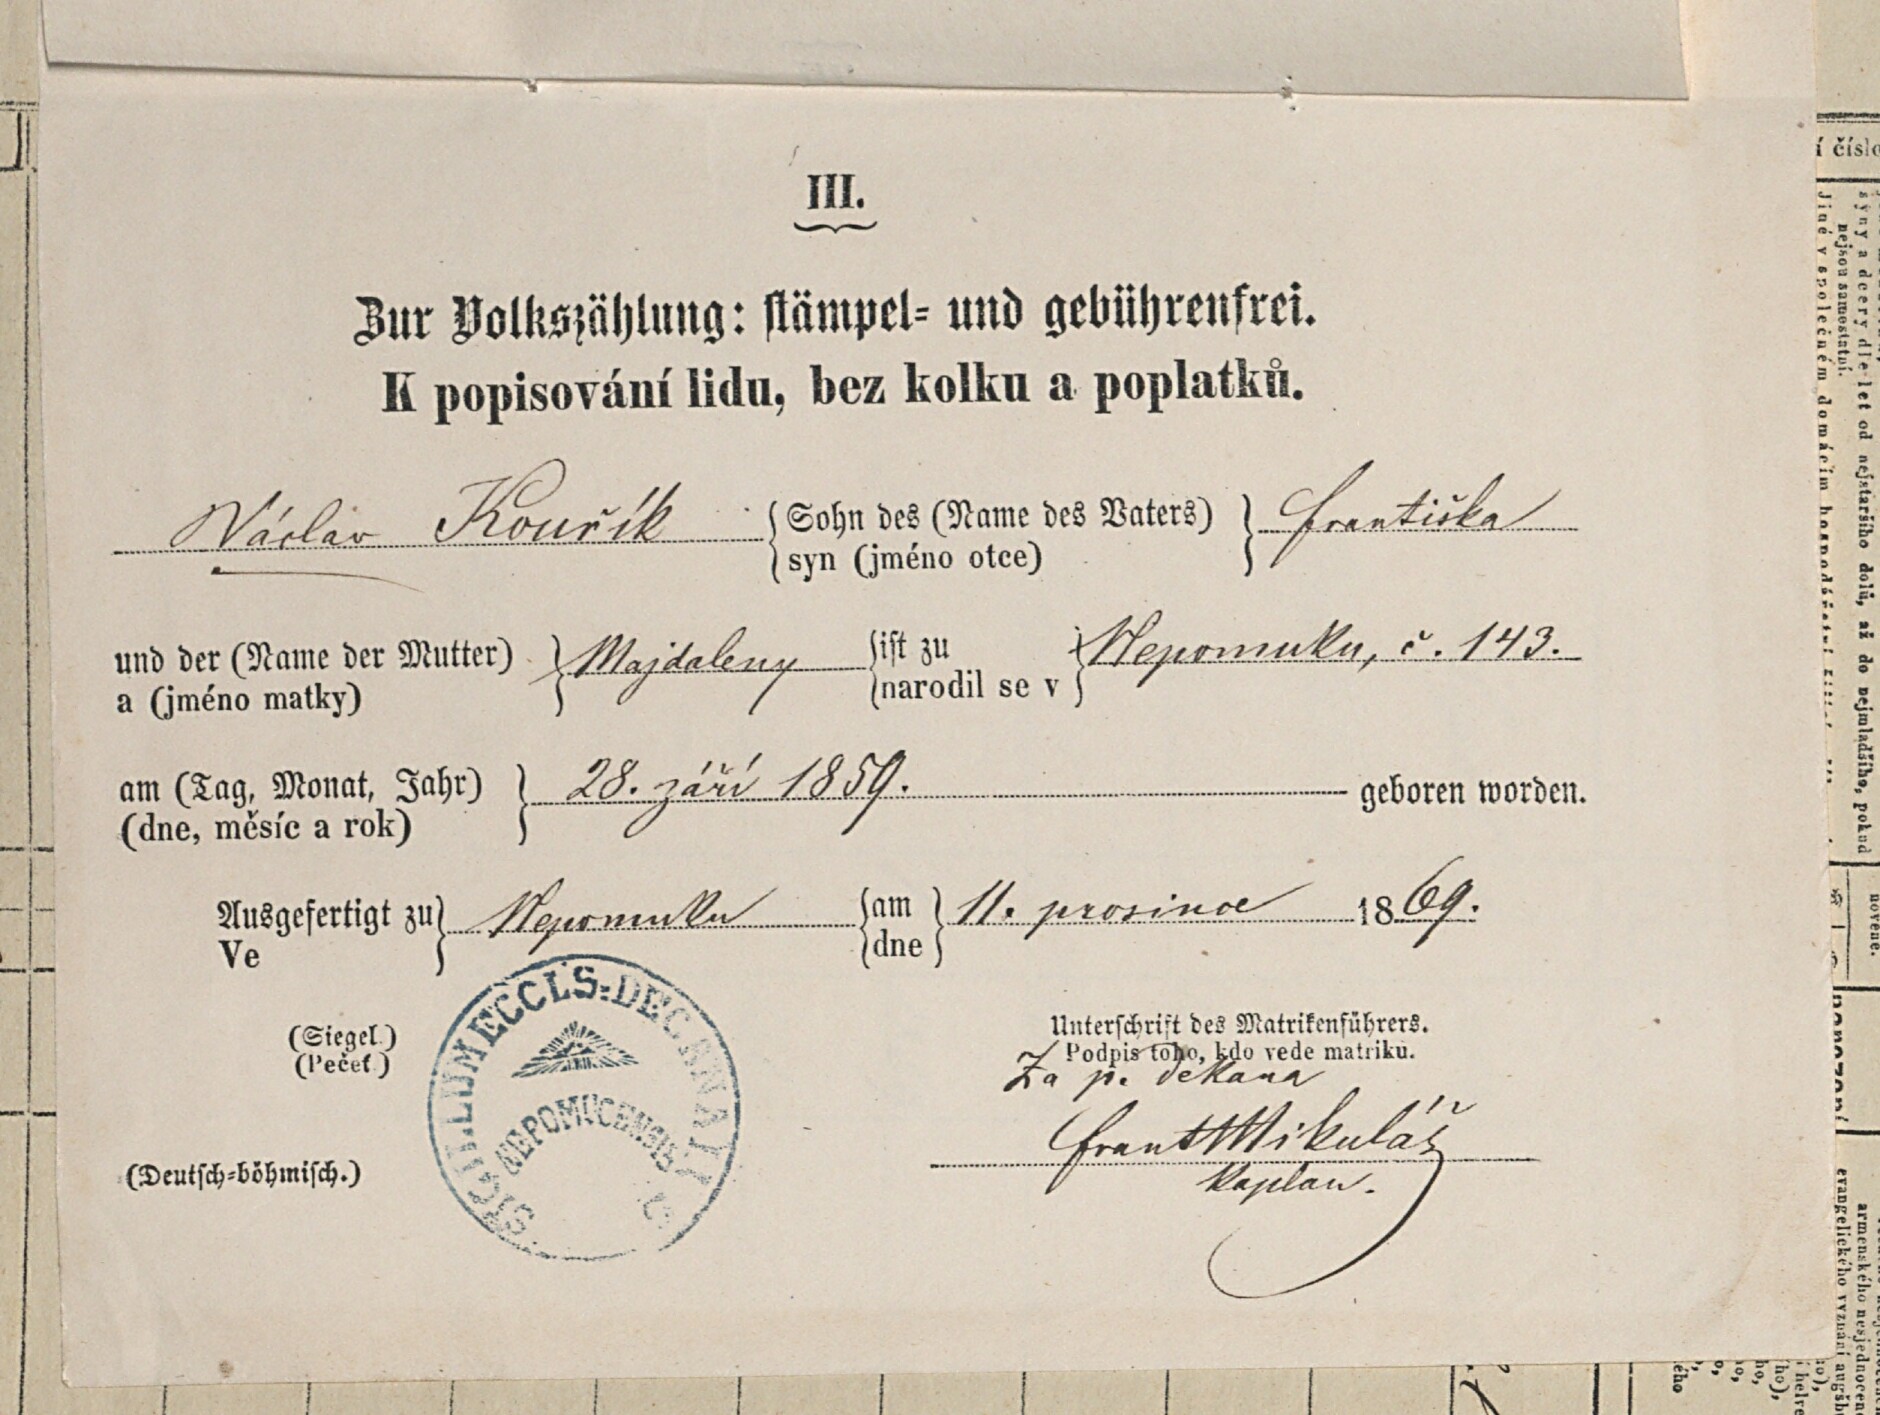 III.
Zur Volkszählung: stämpel- und gebührenfrei.
K popisování lidu, bez kolku a poplatků.
Václav Kouřík { Sohn des (Name des Vaters) } Františka
syn (jméno otce)
und der (Name der Mutter) } Majdaleny { ist zu } Nepomuku, č. 143.
a (jméno matky) narodil se v
am (Tag, Monat, Jahr) } 28. září 1859. geboren worden.
(dne, měsíc a rok)
Ausgefertigt zu } Nepomuku { am } 11. prosince 1869.
Ve dne
(Siegel.)
(Pečeť)
SIGILLUM ECCLS. DECANALIS
NEPOMUCENSIS
Unterschrift des Matrikenführers.
Podpis toho, kdo vede matriku.
Za p. děkana
Frant Mikuláš
kaplan.
(Deutsch-böhmisch.)
í číslo
syny a dcery dle let od nejstaršího dolů, až do nejmladšího, pokud
nejsou samostatní.
Jiné v společném domácím